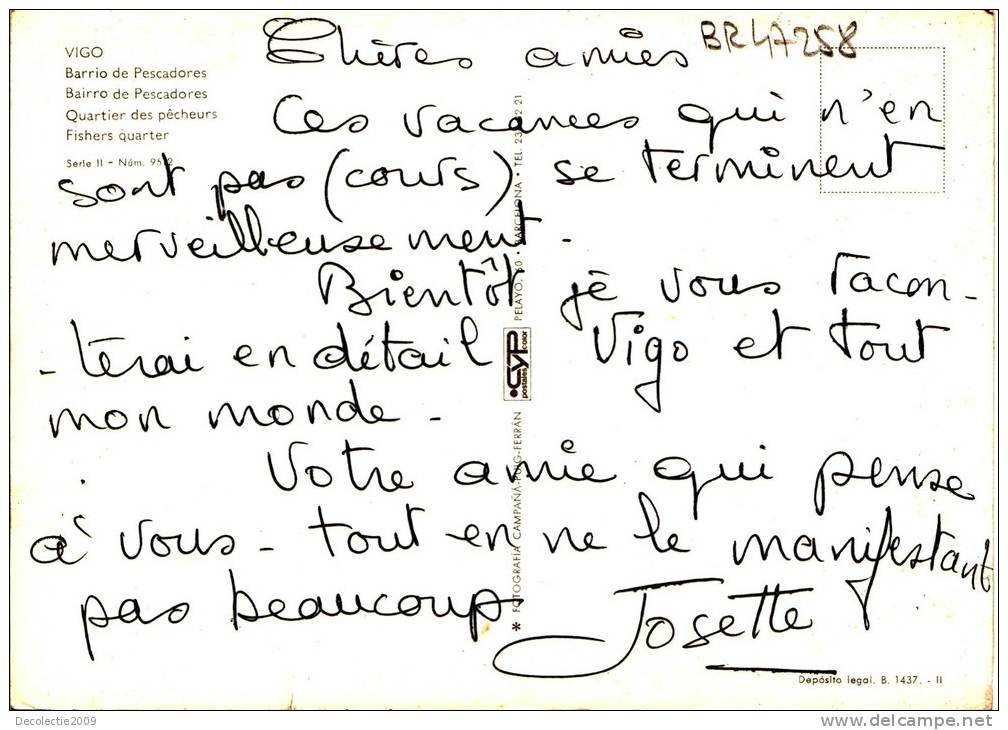 VIGO
Barrio de Pescadores
Bairro de Pescadores
Quartier des pêcheurs
Fishers quarter
Serie II - Núm.
BR47258
Chères amies
Ces vacances qui n'en
sont pas (cours) se terminent
merveilleusement.
Bientôt je vous racon-
-terai en détail Vigo et tout
mon monde -
Votre amie qui pense
à vous - tout en ne le manifestant
pas beaucoup
Josette
* FOTOGRAFÍA CAMPAÑA-PUIG-FERRÁN
CYP color
postales
PELAYO, 60 • BARCELONA • TEL. 21
Depósito legal. B. 1437. - II
Decolectie2009
http://www.delcampe.net